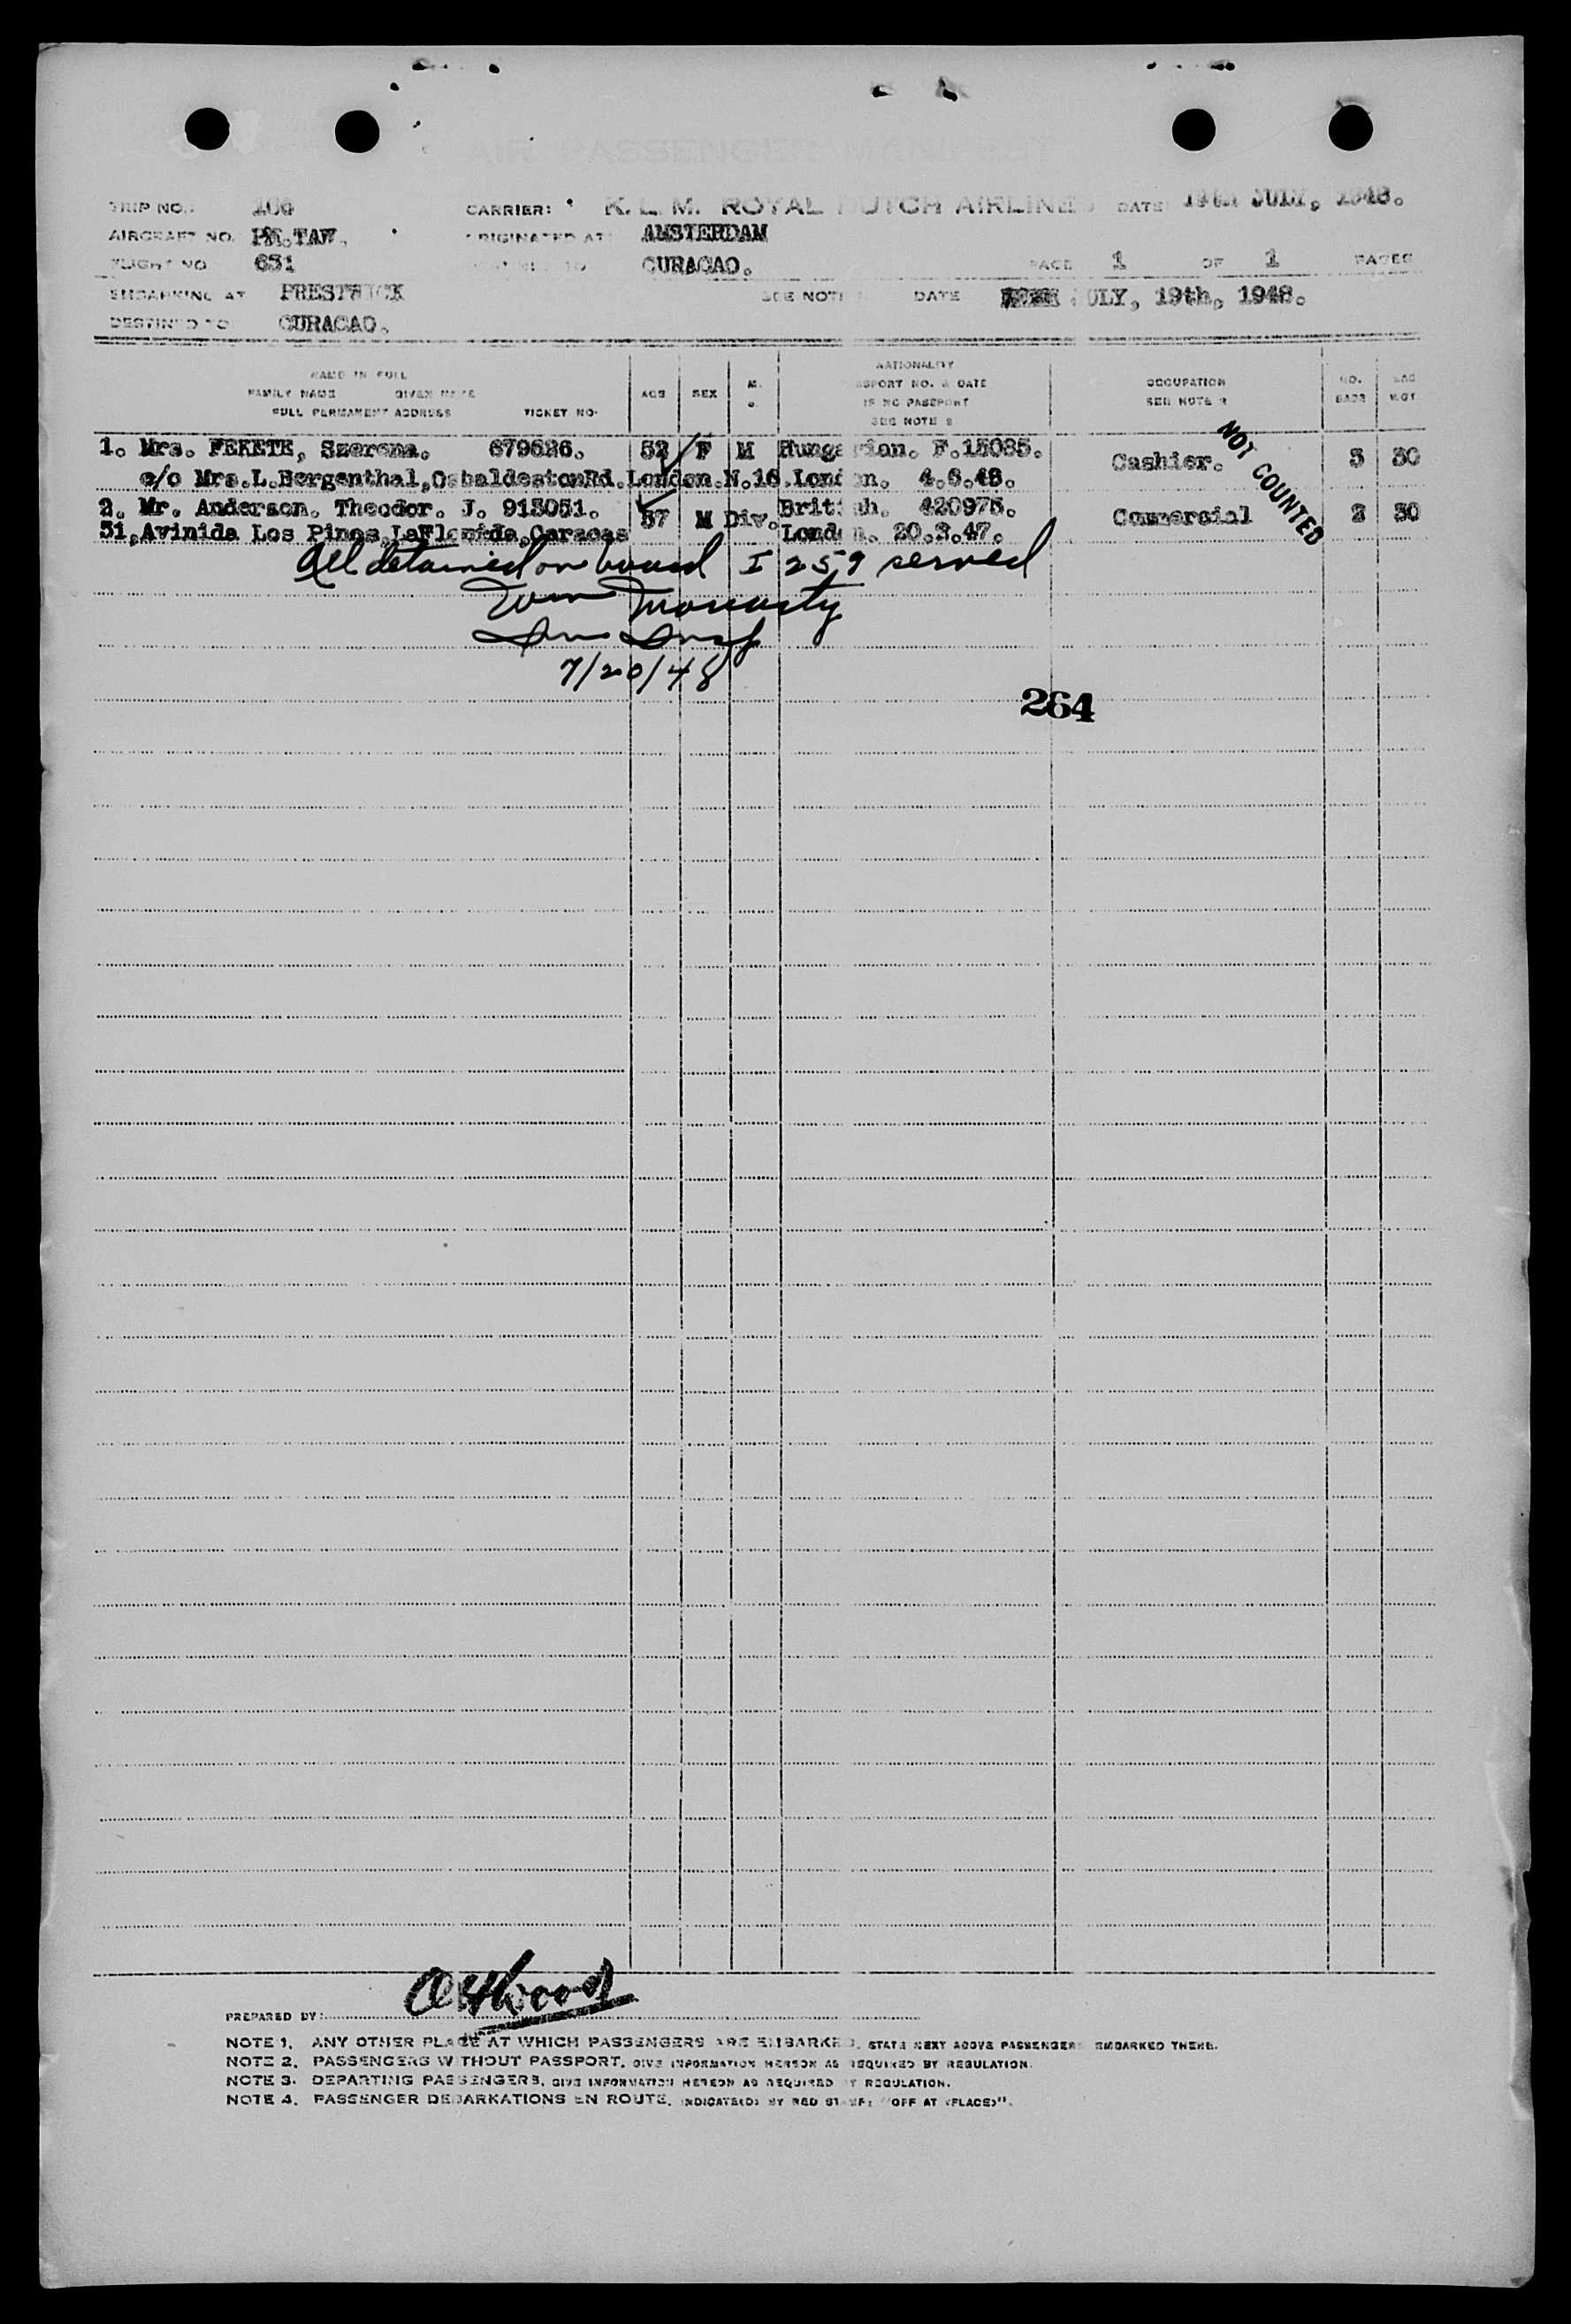 AIR PASSENGER MANIFEST
TRIP NO. 106 CARRIER: K. L. M. ROYAL DUTCH AIRLINES DATE 19th JULY, 1948.
AIRCRAFT NO. PH.TAW. ORIGINATED AT: AMSTERDAM
FLIGHT NO. 631 DESTINED TO CURACAO. PAGE 1 OF 1 PAGES
EMBARKING AT PRESTWICK SEE NOTE DATE JULY, 19th, 1948.
DESTINED TO CURACAO.
NAME IN FULL
FAMILY NAME GIVEN NAME
FULL PERMANENT ADDRESS TICKET NO.
AGE SEX M.
NATIONALITY
PASSPORT NO. & DATE
IF NO PASSPORT
SEE NOTE 2
OCCUPATION
SEE NOTE 3
NO. BAGS
BAG WGT
1. Mrs. FEKETE, Szerena. 679626. 52 F M Hungarian. F.15035. Cashier. 3 30
c/o Mrs.L.Bergenthal,OsbaldestonRd.London.N.16. London. 4.6.48.
2. Mr. Anderson. Theodor. J. 913051. 57 M Div. British. 420975. Commercial 2 30
31,Avinida Los Pinos,LaFlorida,Caracas London. 20.3.47.
NOT COUNTED
All detained on board I 259 served
Tom Moriarty
Imm Insp
7/20/48
264
PREPARED BY:
NOTE 1. ANY OTHER PLACE AT WHICH PASSENGERS ARE EMBARKED, STATE NEXT ABOVE PASSENGERS EMBARKED THERE.
NOTE 2. PASSENGERS WITHOUT PASSPORT, GIVE INFORMATION HEREON AS REQUIRED BY REGULATION.
NOTE 3. DEPARTING PASSENGERS, GIVE INFORMATION HEREON AS REQUIRED BY REGULATION.
NOTE 4. PASSENGER DEBARKATIONS EN ROUTE, INDICATE(D) BY RED STAMP: "OFF AT (PLACE)".